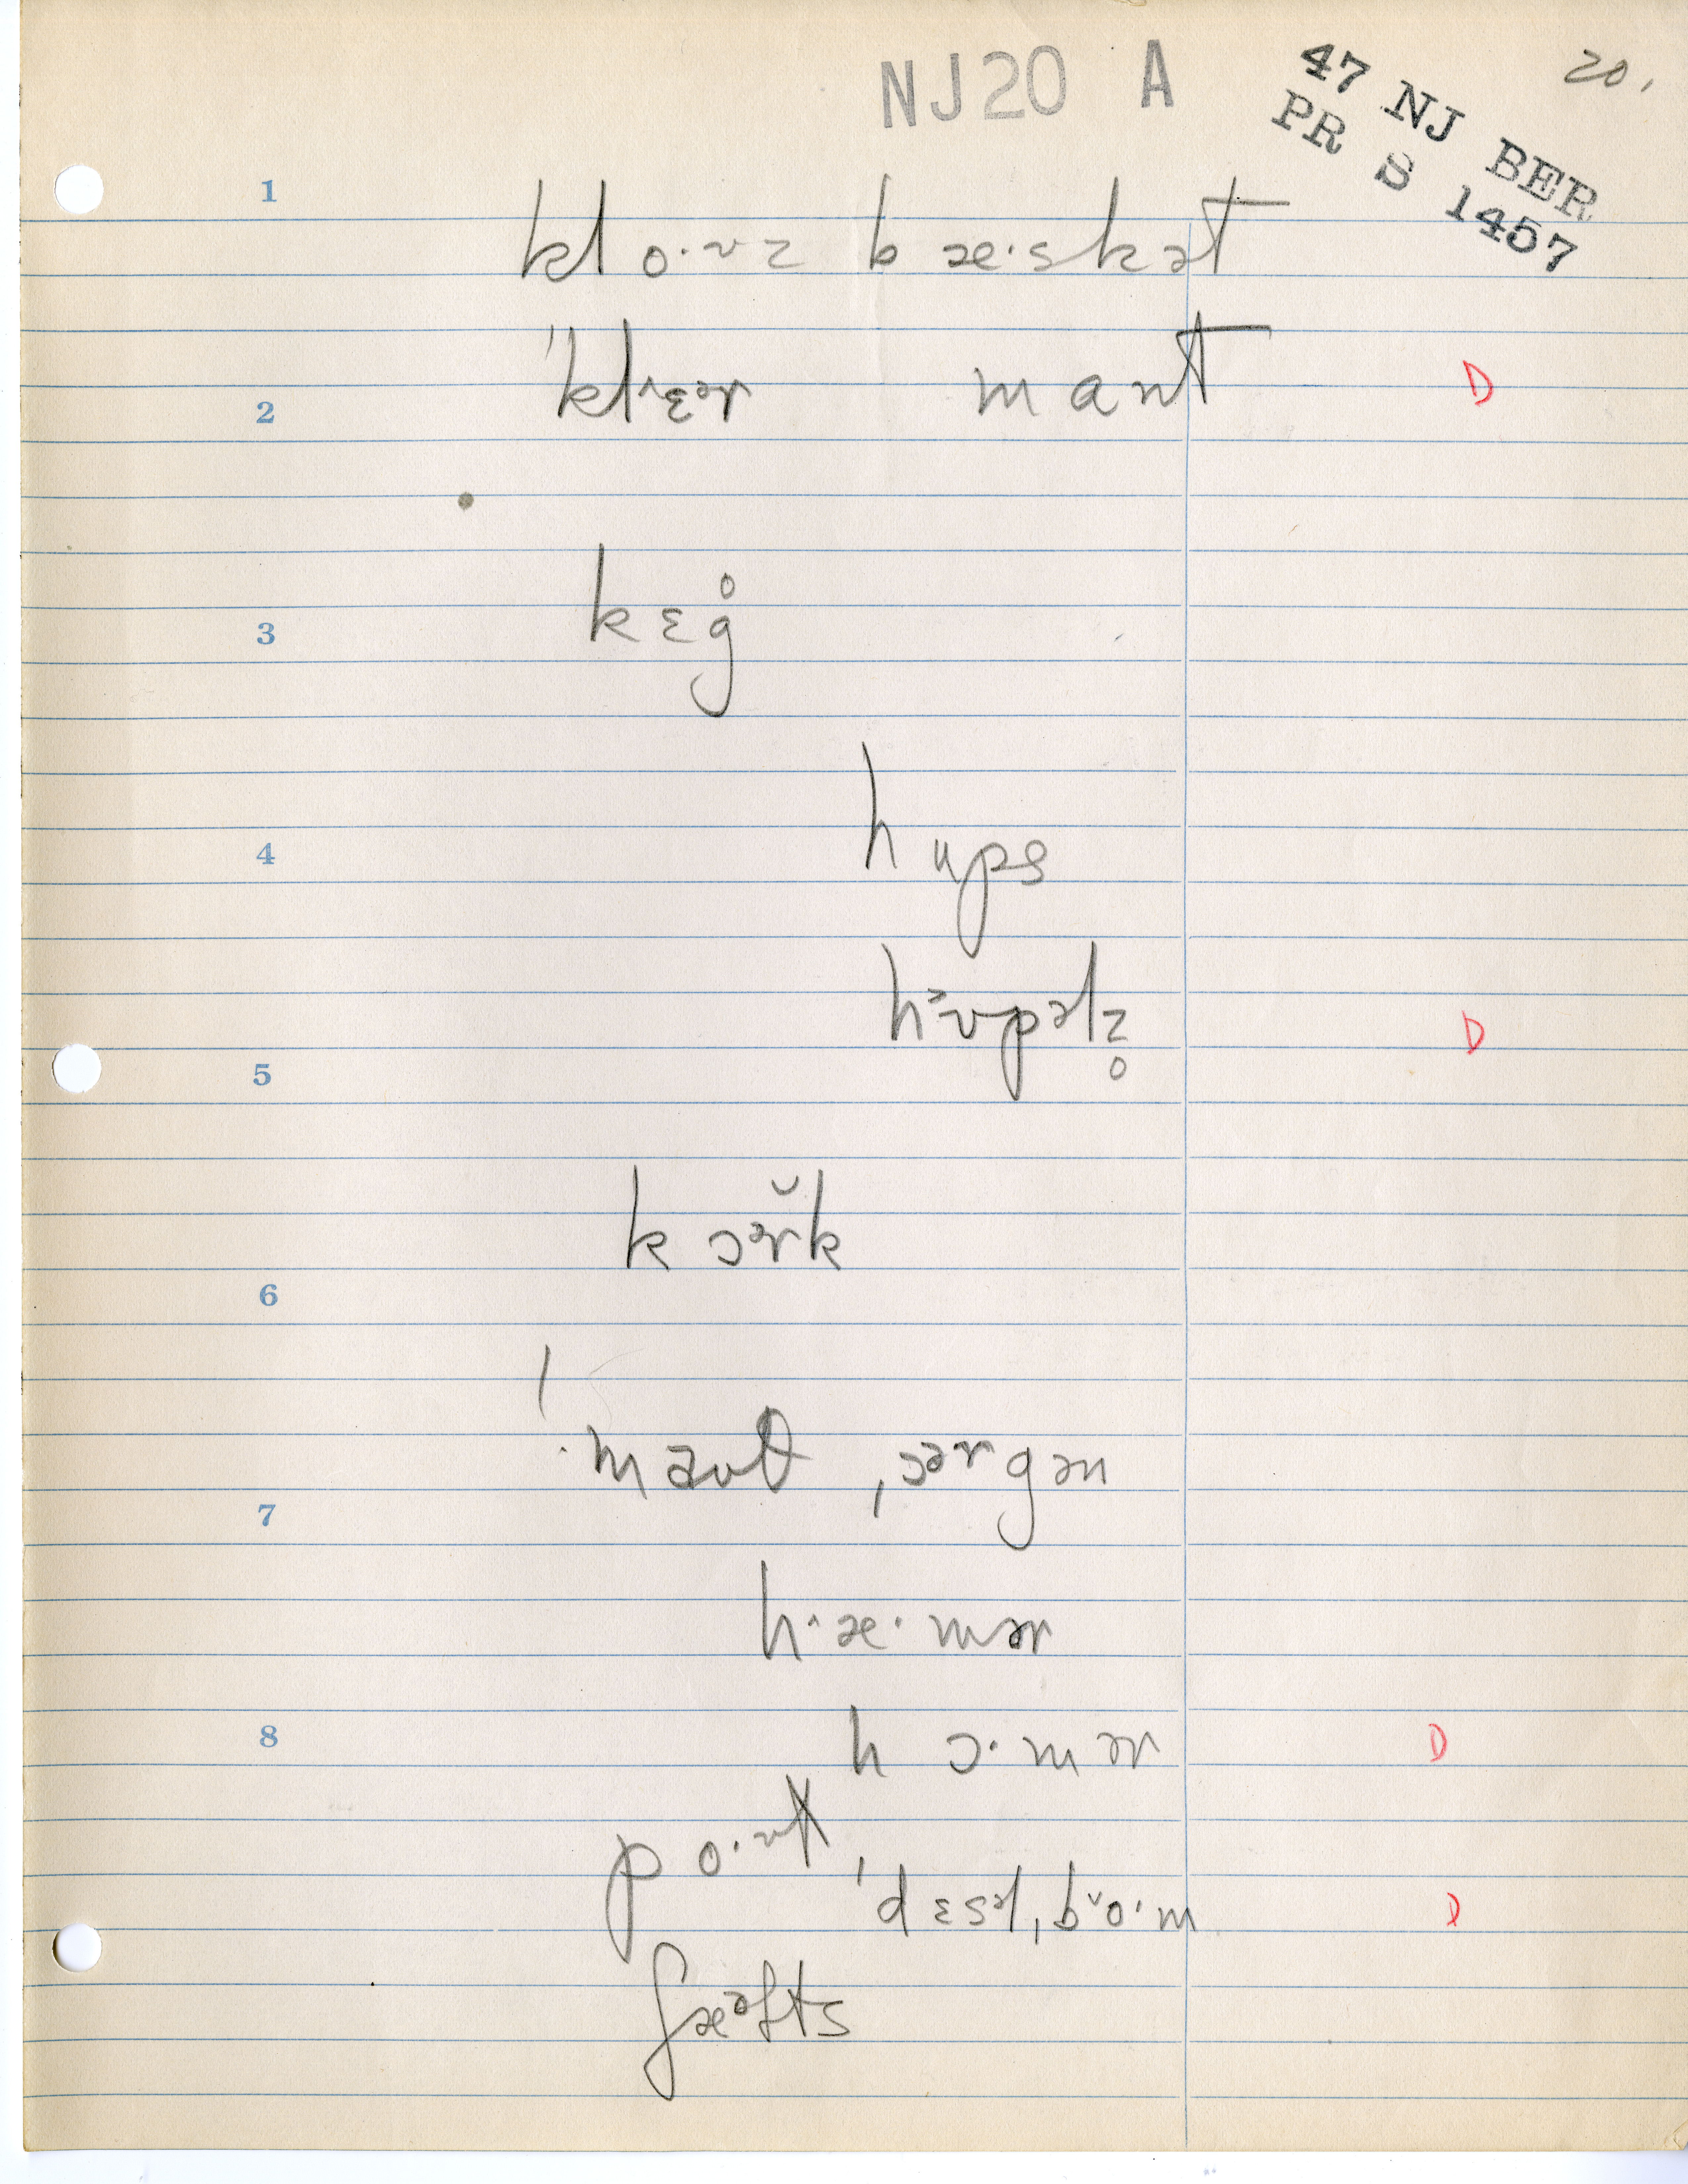 NJ20 A
47 NJ BER
PR S 1457
20.
1
klo·ʊz bæ·skət
ˈklɛər mant D
2
kɛg̊
3
hups
4
hʊpəlz̥ D
5
kɔər̆k
6
ˈmaʊθ ˌɔərgən
7
h·æ·mər
hɔ·mər D
8
po·ʊł
ˈdɛsəlˌbo·m D
ʃæəfts